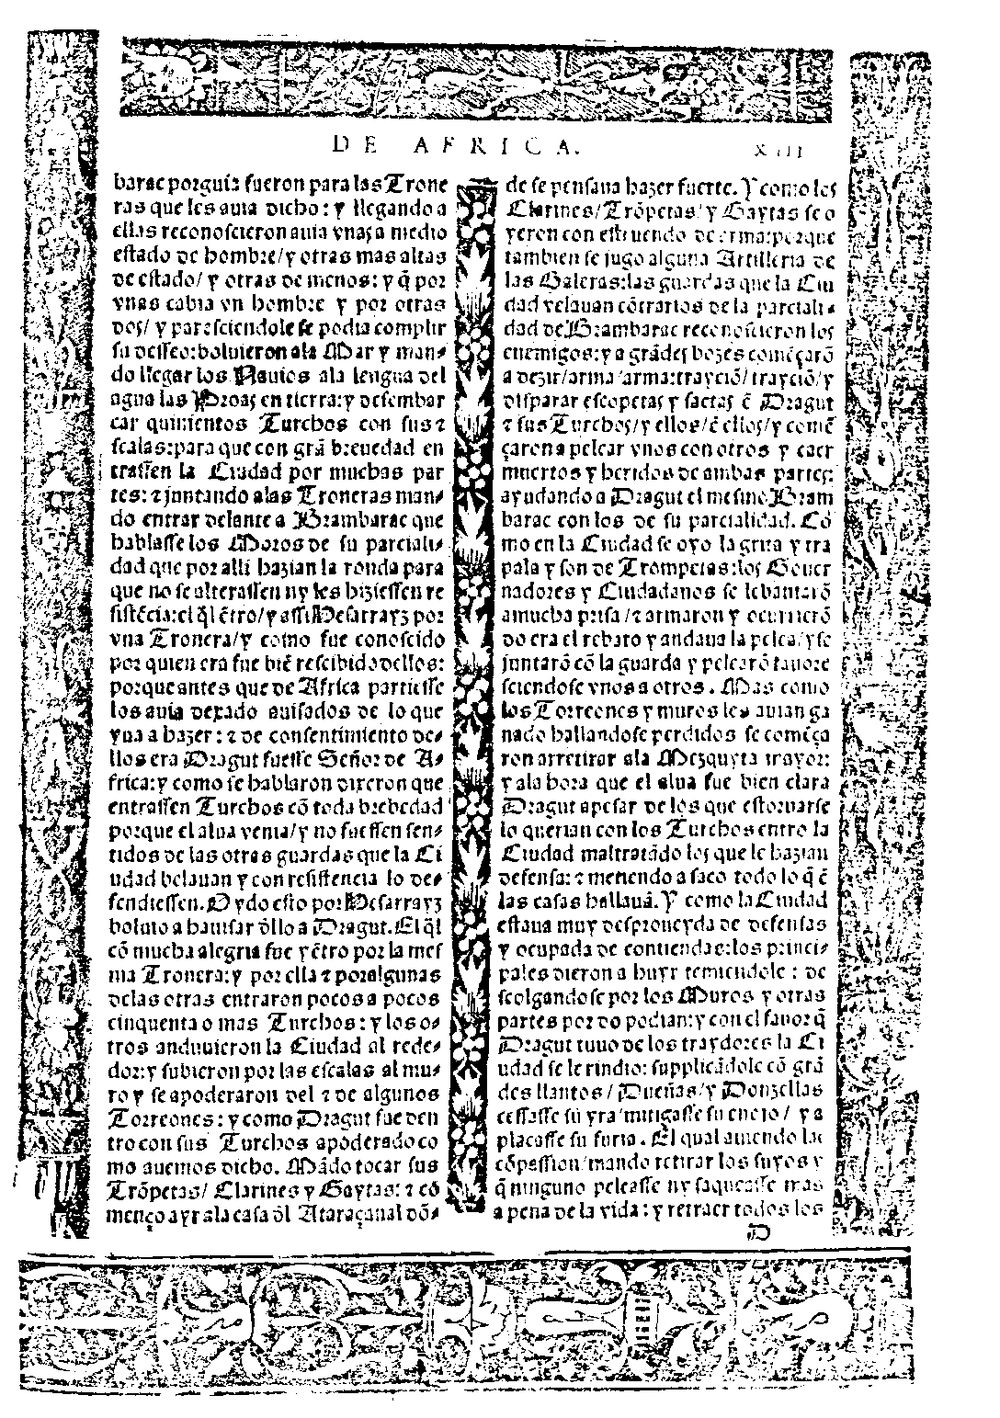 DE AFRICA.
XIII
barac por guia fueron para las Trone
ras que les auia dicho: y llegando a
ellas reconoscieron auia vnas a medio
estado de hombre/ y otras mas altas
de estado/ y otras de menos: y q̃ por
vnas cabia vn hombre y por otras
dos/ y paresciendole se podia complir
su desseo: boluieron ala Mar y man-
do llegar los Nauios ala lengua del
agua las Proas en tierra: y desembar
car quinientos Turchos con sus ⁊
scalas: para que con grã breuedad en
trassen la Ciudad por muchas par
tes: ⁊ juntando alas Troneras man-
do entrar delante a Brambarac que
hablasse los Moros de su parciali-
dad que por alli hazian la ronda para
que no se alterassen ny les hiziessen re
sistẽcia: el q̃l ẽtro/ y assi Desarrayz por
vna Tronera/ y como fue conoscido
por quien era fue biẽ rescibido dellos:
porque antes que de Africa partiesse
los auia dexado auisados de lo que
yua a hazer: ⁊ de consentimiento de-
llos era Dragut fuesse Señor de A-
frica: y como se hablaron dixeron que
entrassen Turchos cõ toda brebedad
porque el alua venia/ y no fuessen sen-
tidos de las otras guardas que la Ci
udad belauan y con resistencia lo de-
fendiessen. Oydo esto por Desarrayz
boluio a hauisar dllo a Dragut. El q̃l
cõ mucha alegria fue y ẽtro por la mes
ma Tronera: y por ella ⁊ por algunas
delas otras entraron pocos a pocos
cinquenta o mas Turchos: y los o-
tros anduuieron la Ciudad al rede-
dor: y subieron por las escalas al mu-
ro y se apoderaron del ⁊ de algunos
Torreones: y como Dragut fue den
tro con sus Turchos apoderado co
mo auemos dicho. Mãdo tocar sus
Trõpetas/ Clarines y Gaytas: ⁊ cõ
menço a yr ala casa dl Ataraçanal dõ-
de se pensaua hazer fuerte. Y como los
Clarines/ Trõpetas/ y Gaytas se o
yeron con estruendo de arma: porque
tambien se jugo alguna Artilleria de
las Galeras: las guardas que la Ciu
dad velauan cõtrarios de la parciali-
dad de Brambarac reconoscieron los
enemigos: y a grãdes bozes començarõ
a dezir/ arma/ arma: trayciõ/ trayciõ/ y
disparar escopetas y saetas ẽ Dragut
⁊ sus Turchos/ y ellos/ ẽ ellos/ y comẽ
çaron a pelear vnos con otros y caer
muertos y heridos de ambas partes:
ayudando a Dragut el mesmo Bram
barac con los de su parcialidad. Co
mo en la Ciudad se oyo la grita y tra
pala y son de Trompetas: los Gouer
nadores y Ciudadanos se lebantarõ
a mucha prisa/ ⁊ armaron y ocurrierõ
do era el rebato y andaua la pelea/ y se
juntarõ cõ la guarda y pelearõ fauore
sciendose vnos a otros. Mas como
los Torreones y muros les auian ga
nado hallandose perdidos se comẽça
ron a rretirar ala Mezquyta mayor:
y ala hora que el alua fue bien clara
Dragut apesar de los que estoruarse
lo querian con los Turchos entro la
Ciudad maltratãdo los que le hazian
defensa: ⁊ metiendo a saco todo lo q̃ ẽ
las casas hallauã. Y como la Ciudad
estaua muy desproueyda de defensas
y ocupada de contiendas: los princi-
pales dieron a huyr temiendole: de
scolgandose por los Muros y otras
partes por do podian: y con el fauor q̃
Dragut tuuo de los traydores la Ci
udad se le rindio: supplicãdole cõ grã
des llantos/ Dueñas/ y Donzellas
cessasse su yra/ mitigasse su enojo/ y a
placasse su furia. El qual auiendo la
cõpassion/ mando retirar los suyos y
q̃ ninguno peleasse ny saqueasse mas
a pena de la vida: y retraer todos los
D